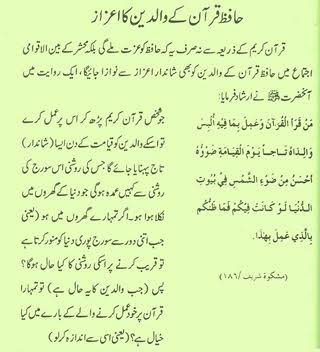 حافظ قرآن کے والدین کا اعزاز
قرآن کریم کے ذریعہ سے نہ صرف یہ کہ حافظ کو عزت ملے گی بلکہ محشر کے بین الاقوامی
اجتماع میں حافظ قرآن کے والدین کو بھی شاندار اعزاز سے نوازا جائیگا، ایک روایت میں
آنحضرت ﷺ نے ارشاد فرمایا:
مَنْ قَرَأَ الْقُرْآنَ وَعَمِلَ بِمَا فِيهِ أُلْبِسَ
وَالِدَاهُ تَاجاً يَوْمَ الْقِيَامَةِ ضَوْؤُهُ
أَحْسَنُ مِنْ ضَوْءِ الشَّمْسِ فِيْ بُيُوْتِ
الدُّنْيَا لَوْ كَانَتْ فِيْكُمْ فَمَا ظَنُّكُمْ
بِالَّذِي عَمِلَ بِهٰذَا.
(مشکوٰۃ شریف /۱۸۶)
جو شخص قرآن کریم پڑھ کر اس پر عمل کرے
تو اسکے والدین کو قیامت کے دن ایسا (شاندار)
تاج پہنایا جائے گا جس کی روشنی اس سورج کی
روشنی سے کہیں عمدہ ہوگی جو دنیا کے گھروں میں
نکلا ہوا ہو۔ اگر تمہارے گھروں میں ہو (یعنی
جب اتنی دور سے سورج پوری دنیا کو منور کرتا ہے
تو قریب کرنے پر اسکی روشنی کا کیا حال ہوگا؟
پس (جب والدین کا یہ حال ہے) تو تمہارا
قرآن پر خود عمل کرنے والے کے بارے میں کیا
خیال ہے؟ (یعنی اسی سے اندازہ کرلو)